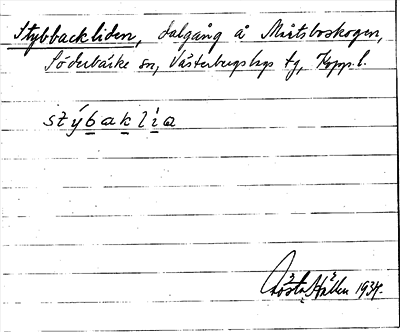 Stybbackliden, dalgång å Mårtsboskogen,
Söderbärke sn, Västerbergslags tg, Kopp. l.
stýbaklia
Gösta 1937.